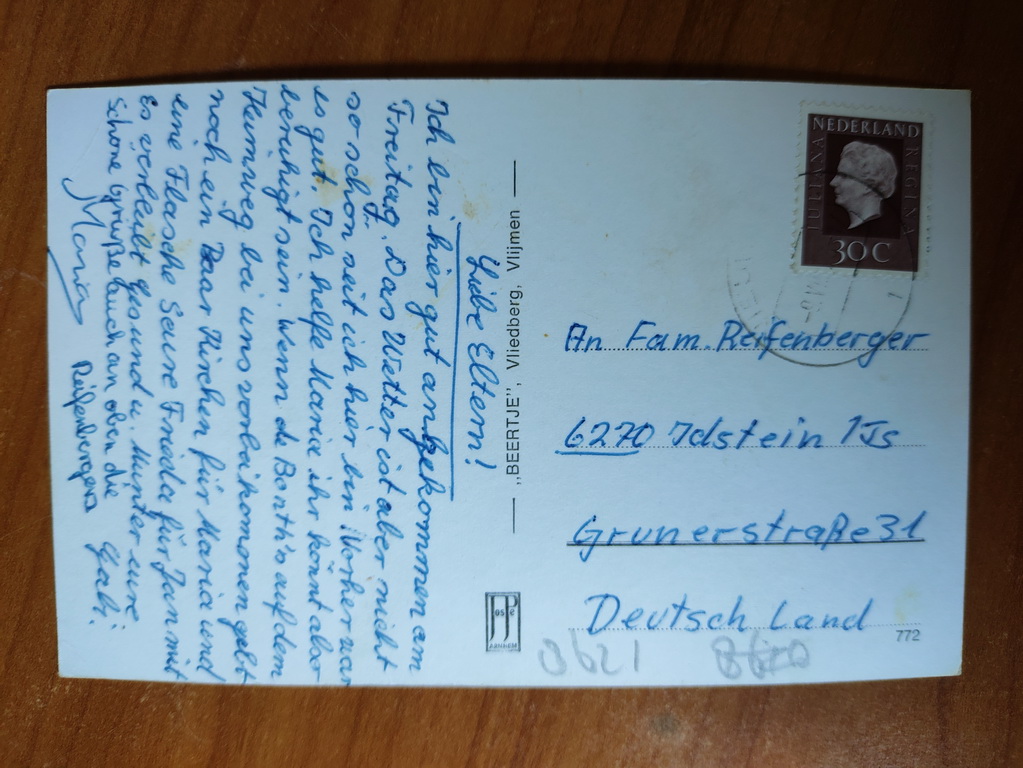 Liebe Eltern!
Ich bin hier gut angekommen am
Freitag. Das Wetter ist aber nicht
so schön seit ich hier bin. Vorher war
es gut. Ich helfe Maria ihr könnt also
beruhigt sein. Wenn de Bonth's auf dem
Heimweg bei uns vorbeikommen gebt
noch ein Paar Kirchen für Maria und
eine Flasche Seure Frieda für Jan mit
Es verbleibt gesund u. Munter eure:
Schöne Grüße auch an oben die Gabi
Reifenbergers
Maria
„BEERTJE”, Vliedberg, Vlijmen
JosPe
ARNHEM
NEDERLAND
JULIANA REGINA
30 C
An Fam. Reifenberger
6270 Idstein 1Ts
Grunerstraße 31
Deutschland
772
0621